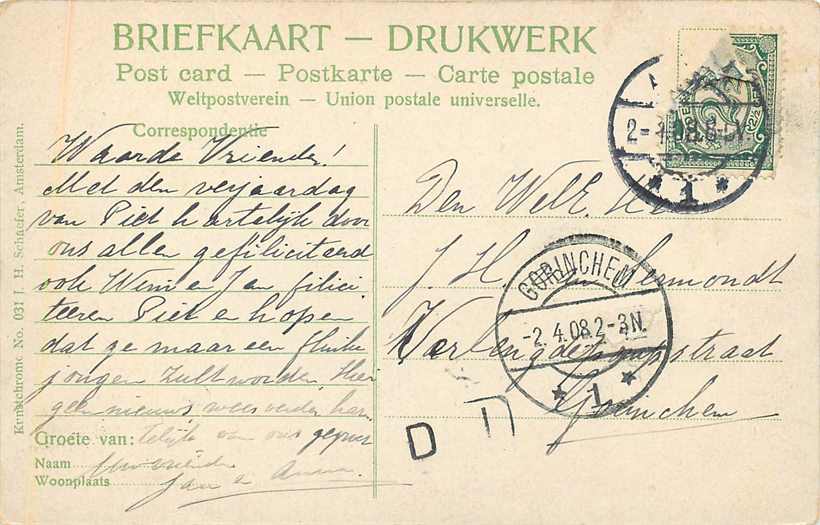 BRIEFKAART — DRUKWERK
Post card — Postkarte — Carte postale
Weltpostverein — Union postale universelle.
Correspondentie
Waarde Vrienden!
Met den verjaardag
van Piet hartelijk door
ons allen gefiliciteerd
ook Wim en Jan filici
teeren Piet en hopen
dat ge maar een flinke
jongen zult worden. Hier
geen nieuws wees verder har
Groete van: telijk van ons gegroet
Naam Uw vrienden
Woonplaats Jan en Anna
Kunstchrome No. 031 J. H. Schaefer, Amsterdam.
2½
2-4.08.8-
1
Den WelE. Heer
J. H. van Hermondt
straat
Gorinchem
GORINCHEM
-2. 4.08.2-3N.
1
D